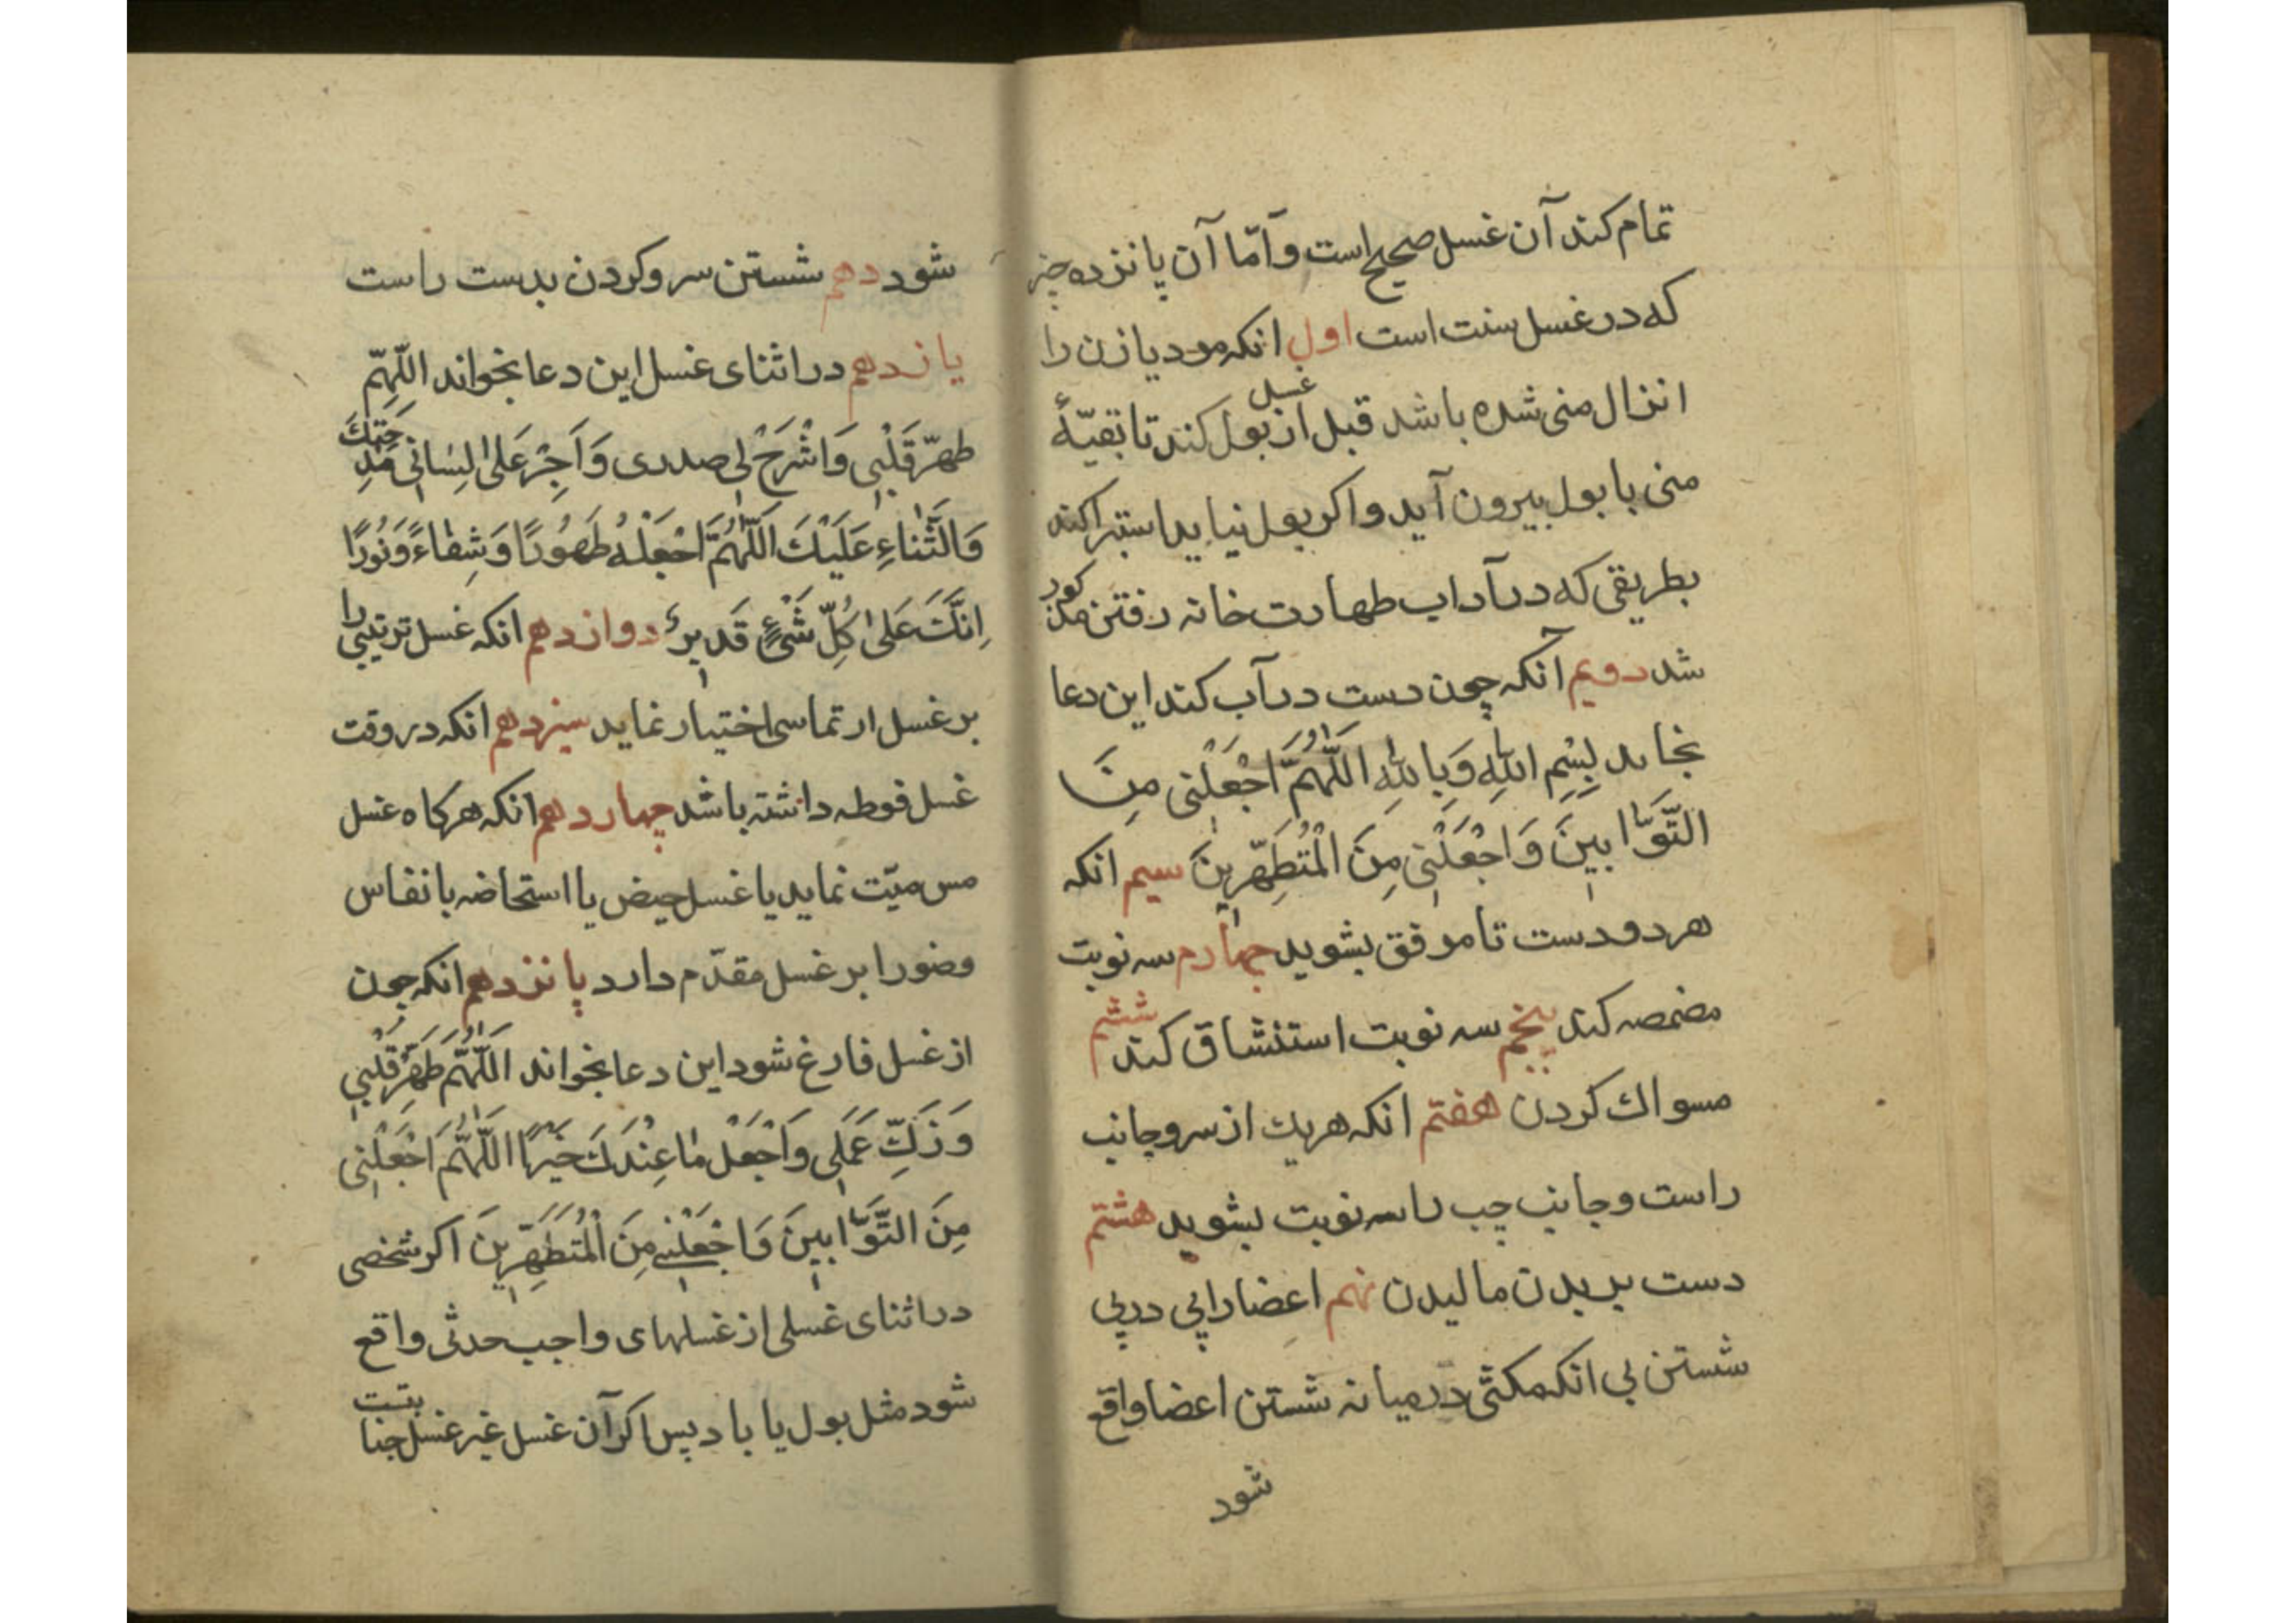 تمام کند آن غسل صحیح است و امّا آن پانزده چیز
که در غسل سنت است اول انکه مرد یا زن را
انزال منی شده باشد قبل از غسل بول کند تا بقیّهٔ
منی با بول بیرون آید و اکر بول نیاید استبرا کند
بطریقی که در آداب طهارت خانه رفتن مذکور
شد دویم آنکه چون دست در آب کند این دعا
بخاند بِسْمِ اللهِ وَبِاللهِ اَللّهُمَّ اجْعَلْنی مِنَ
التَّوّابینَ وَاجْعَلْنی مِنَ الْمُتَطَهِّرینَ سیم انکه
هر دو دست تا مرفق بشوید چهارم سه نوبت
مضمضه کند پنجم سه نوبت استنشاق کند ششم
مسواك کردن هفتم انکه هریك از سر و جانب
راست و جانب چپ را سه نوبت بشوید هشتم
دست بر بدن مالیدن نهم اعضا را پی در پی
شستن بی انکه مکثی در میانه شستن اعضا واقع
شود
شود دهم شستن سر و کردن بدست راست
یازدهم در اثنای غسل این دعا بخواند اللّهمّ
طهّر قَلْبی وَاشْرَحْ لی صدری وَاَجِرْ عَلیٰ لِسٰانی مِدْحَتَكَ
وَالثَّنٰاءِ عَلَیْكَ اَللّٰهُمَّ اجْعَلْهُ طَهُورًا وَشِفٰاءً وَنُورًا
اِنَّكَ عَلیٰ كُلِّ شَیْءٍ قَدیرٌ دوازدهم انکه غسل ترتیبی را
بر غسل ارتماسی اختیار نماید سیزدهم انکه در وقت
غسل فوطه داشته باشد چهاردهم انکه هرکاه غسل
مس میّت نماید یا غسل حیض یا استحاضه یا نفاس
وضو را بر غسل مقدّم دارد پانزدهم انکه چون
از غسل فارغ شود این دعا بخواند اَللّٰهُمَّ طَهِّرْ قَلْبی
وَزَكِّ عَمَلی وَاجْعَلْ مٰا عِنْدَكَ خَیْرًا اَللّٰهُمَّ اجْعَلْنی
مِنَ التَّوّابینَ وَاجْعَلْنی مِنَ الْمُتَطَهِّرینَ اکر شخصی
در اثنای غسلی از غسلهای واجب حدثی واقع
شود مثل بول یا باد پس اکر آن غسل غیر غسل جنابت